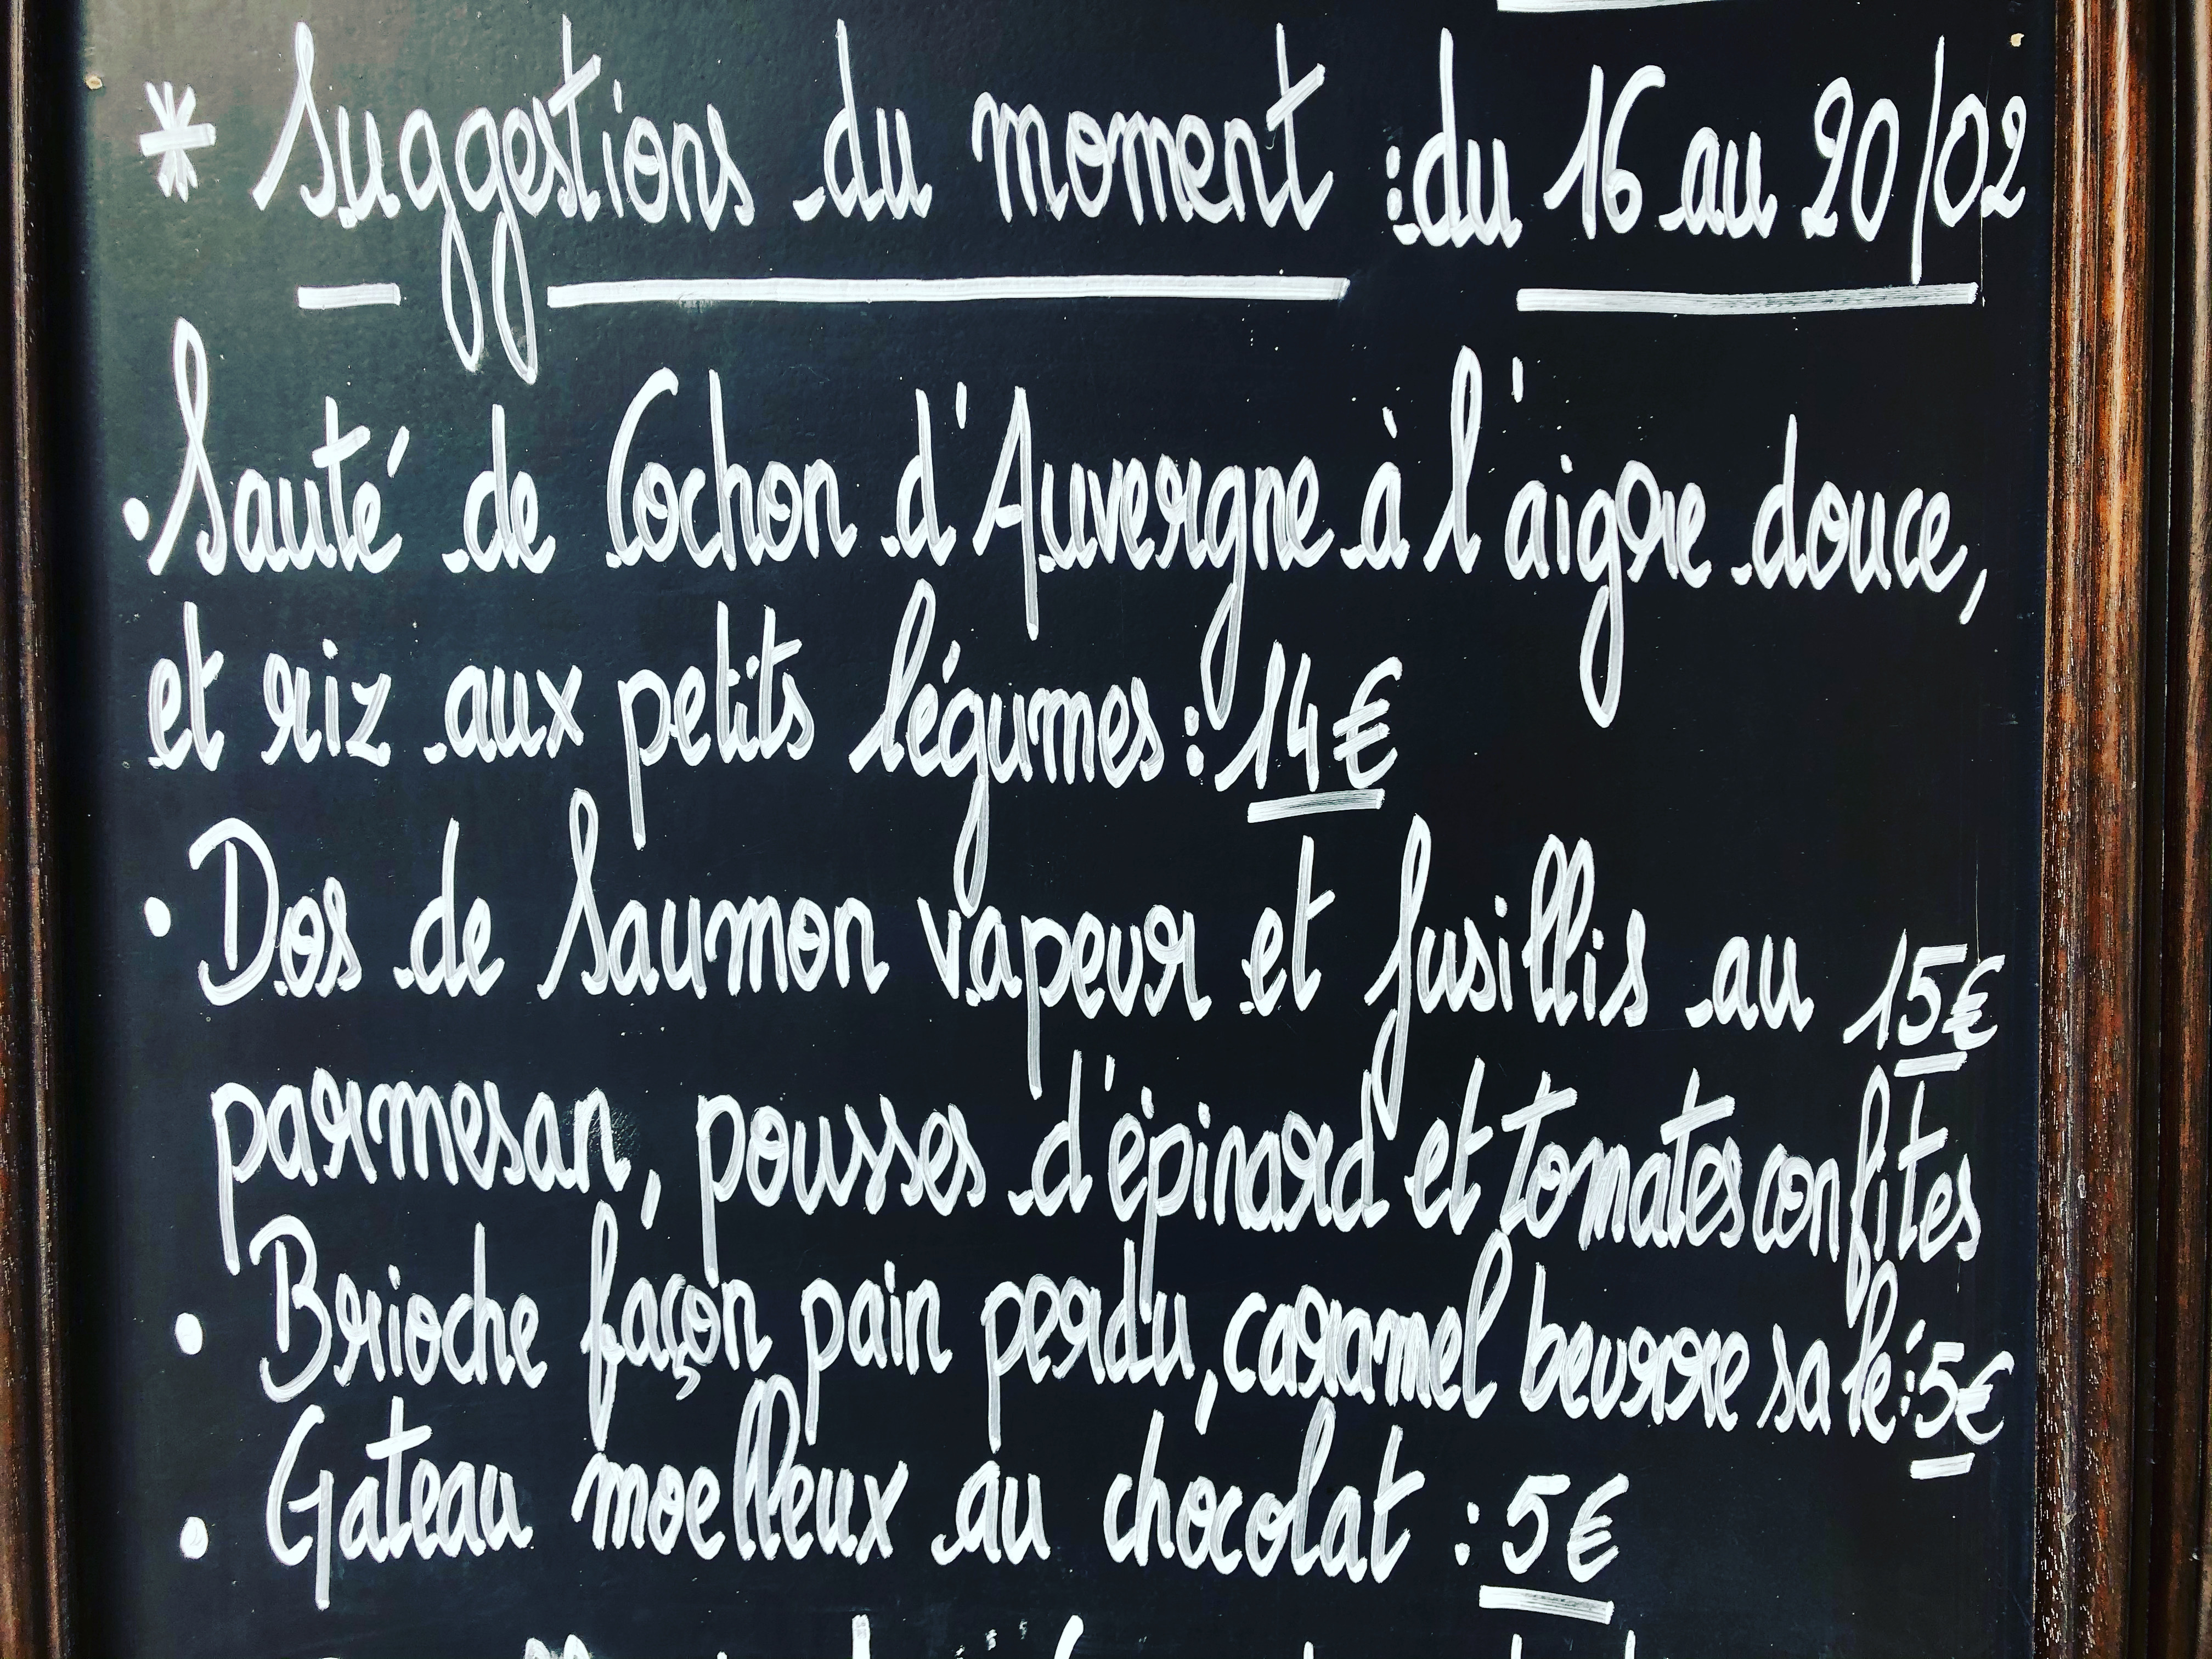 * Suggestions du moment : du 16 au 20/02
• Sauté de Cochon d'Auvergne à l'aigre douce,
et riz aux petits légumes : 14€
• Dos de Saumon vapeur et fusillis au 15€
parmesan, pousses d'épinard et tomates confites
• Brioche façon pain perdu, caramel beurre salé : 5€
• Gateau moelleux au chocolat : 5€